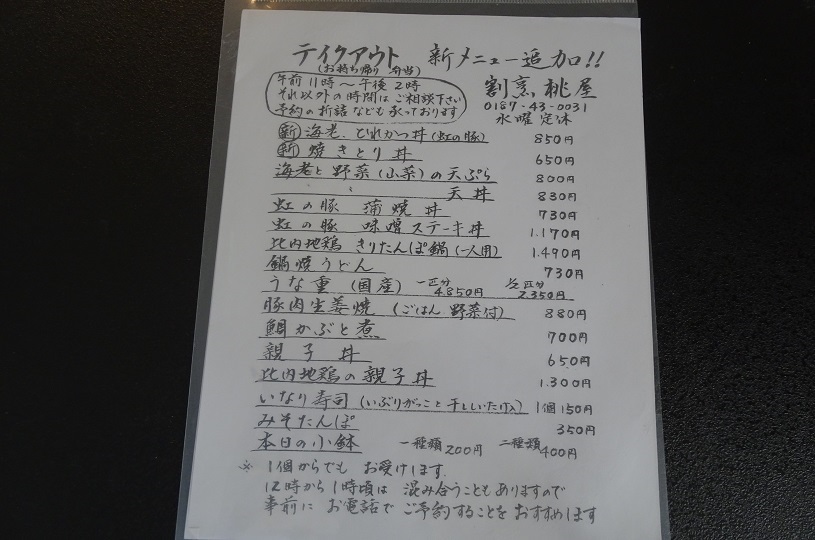 テイクアウト 新メニュー追加!!
(お持ち帰り 弁当)
午前11時～午後2時
それ以外の時間はご相談下さい
予約の折詰なども承っております
割烹 桃屋
0187-43-0031
水曜定休
新 海老、とれかつ丼(虹の豚) 850円
新 焼きとり丼 650円
海老と野菜(山菜)の天ぷら 800円
〃 天丼 830円
虹の豚 蒲焼丼 730円
虹の豚 味噌ステーキ丼 1.170円
比内地鶏 きりたんぽ鍋(一人用) 1.490円
鍋焼うどん 730円
うな重(国産) 一匹分 4.850円 1/2匹分 2.350円
豚肉生姜焼(ごはん 野菜付) 880円
鯛かぶと煮 700円
親子丼 650円
比内地鶏の親子丼 1.300円
いなり寿司(いぶりがっこと干ししいたけ入) 1個150円
みそたんぽ 350円
本日の小鉢 一種類200円 二種類400円
※ 1個からでも お受けします.
12時から1時頃は 混み合うこともありますので
事前に お電話で ご予約することを おすすめします